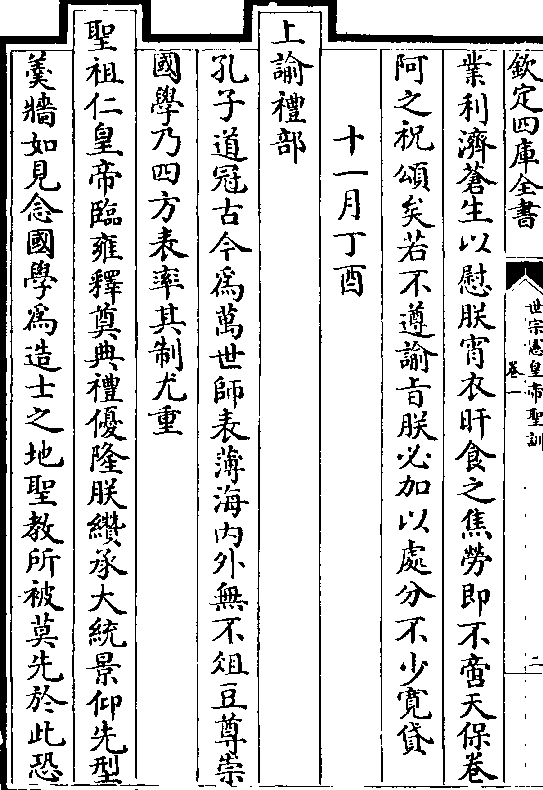 欽定四庫全書
世宗憲皇帝聖訓
卷一
二
業利濟蒼生以慰朕宵衣旰食之焦勞即不啻天保卷
阿之祝頌矣若不遵諭㫖朕必加以處分不少寬貸
十一月丁酉
上諭禮部
孔子道冠古今為萬世師表薄海内外無不俎豆尊崇
國學乃四方表率其制尤重
聖祖仁皇帝臨雍釋奠典禮優隆朕纘承大統景仰先型
羹牆如見念國學為造士之地聖教所被莫先於此恐